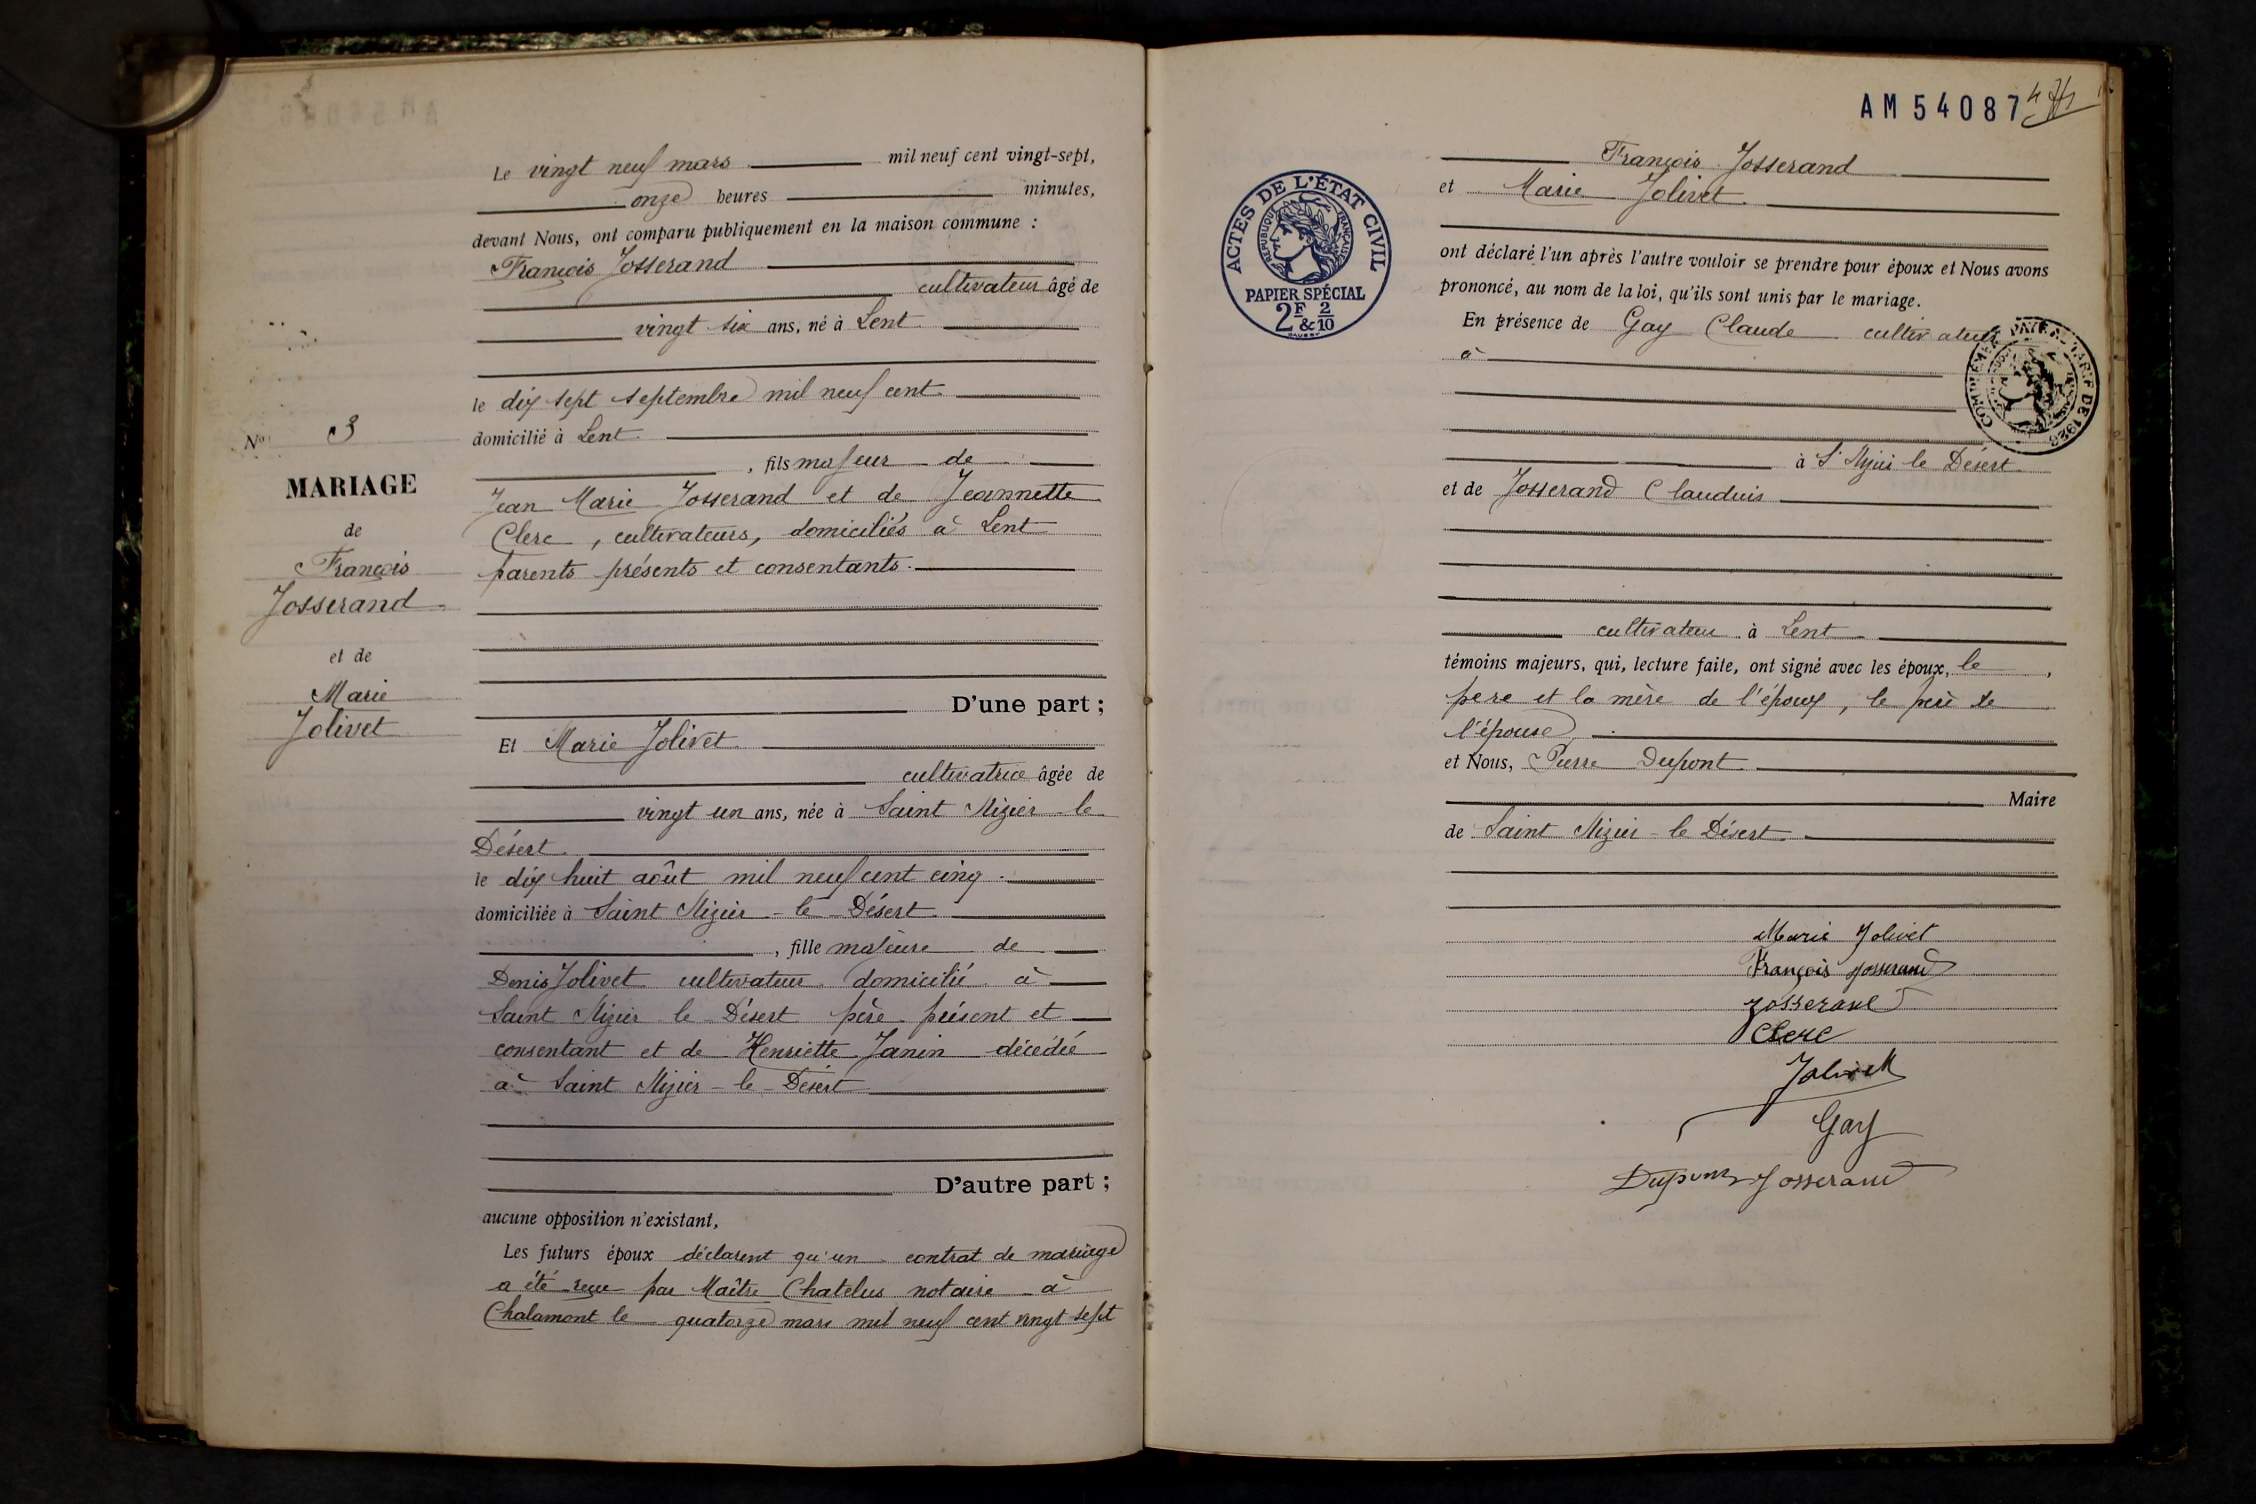 Le vingt neuf mars mil neuf cent vingt-sept,
onze heures minutes,
devant Nous, ont comparu publiquement en la maison commune :
François Josserand
cultivateur âgé de
vingt six ans, né à Lent
le dix sept septembre mil neuf cent
domicilié à Lent
, fils majeur de
Jean Marie Josserand et de Jeannette
Clerc, cultivateurs, domiciliés à Lent
parents présents et consentants.
D'une part ;
Et Marie Jolivet
cultivatrice âgée de
vingt un ans, née à Saint Nizier le
Désert
le dix huit août mil neuf cent cinq.
domiciliée à Saint Nizier - le Désert
, fille majeure de
Denis Jolivet cultivateur domicilié à
Saint Nizier le Désert père présent et
consentant et de Henriette Janin décédée
à Saint Nizier - le - Désert
D'autre part ;
aucune opposition n'existant,
Les futurs époux déclarent qu'un contrat de mariage
a été reçu par Maître Chatelus notaire à
Chalamont le quatorze mars mil neuf cent vingt sept
No 3
MARIAGE
de
François
Josserand
et de
Marie
Jolivet
AM 54087
ACTES DE L'ÉTAT CIVIL
RÉPUBLIQUE FRANÇAISE
PAPIER SPÉCIAL
2F & 2/10
François Josserand
et Marie Jolivet
ont déclaré l'un après l'autre vouloir se prendre pour époux et Nous avons
prononcé, au nom de la loi, qu'ils sont unis par le mariage.
En présence de Gay Claude cultivateur
à
à St Nizier le Désert
et de Josserand Claudius
cultivateur à Lent
témoins majeurs, qui, lecture faite, ont signé avec les époux, le,
père et la mère de l'époux, le père de
l'épouse,
et Nous, Pierre Dupont
Maire
de Saint Nizier - le Désert
Marie Jolivet
François Josserand
Josserand
Clerc
Jolivet
Gay
Dupont Josserand